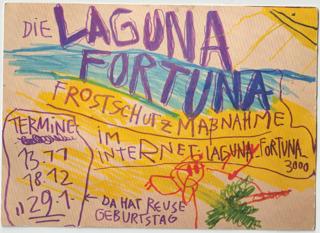 DIE LAGUNA
FORTUNA
FROSTSCHUTZ MAßNAHME
TERMINE
13.11
18.12
"29.1.
IM
INTERNET: LAGUNA_FORTUNA_
3000
← DA HAT REUSE
GEBURTSTAG